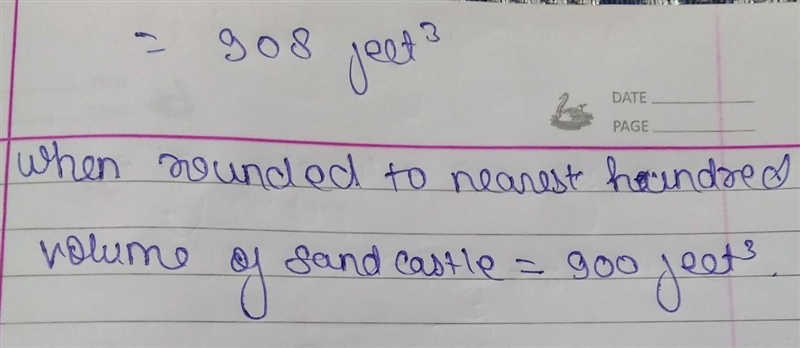 = 908 feet³
DATE
PAGE
When rounded to nearest hundred
volume of sand castle = 900 feet³.